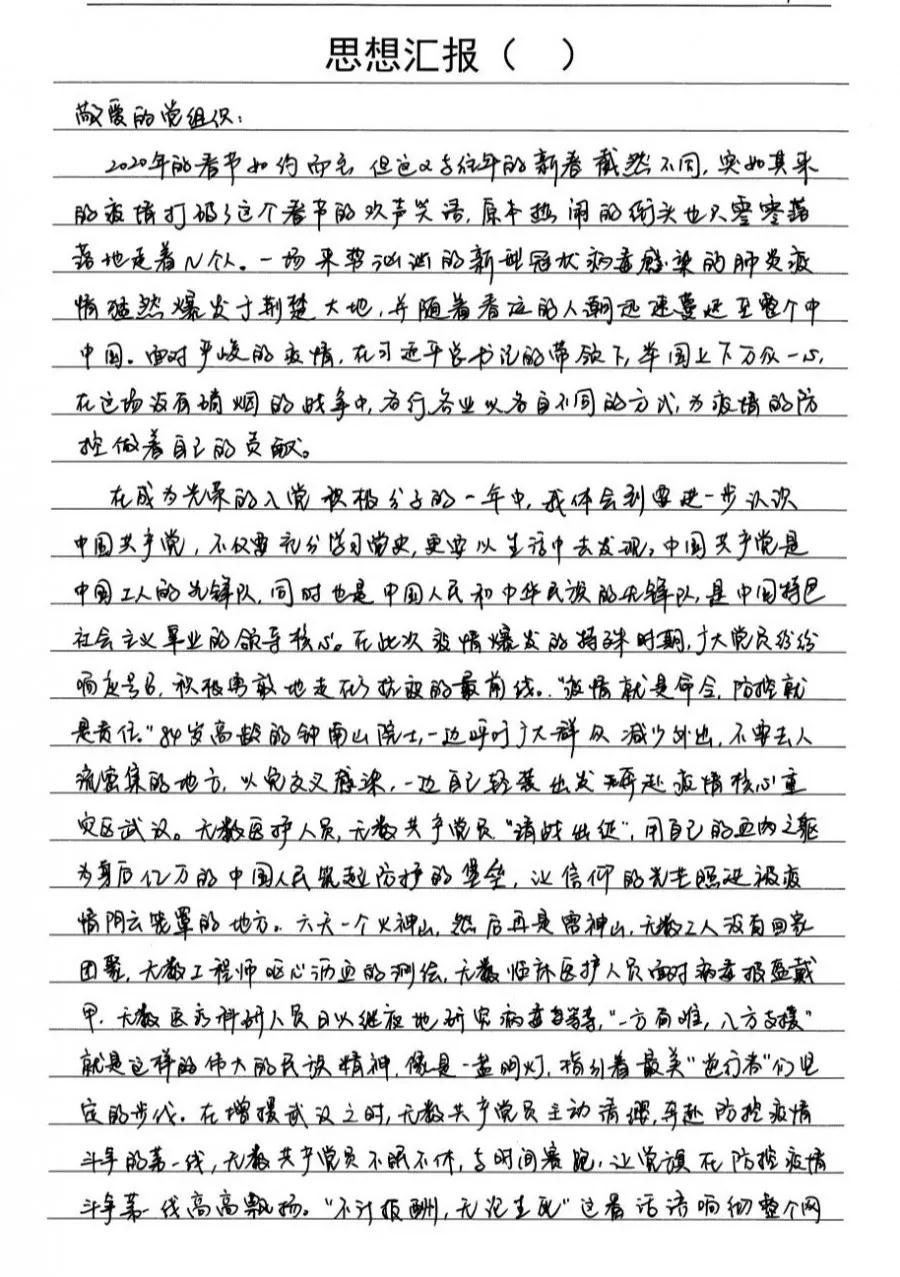 思想汇报（ ）
敬爱的党组织：
2020年的春节如约而至，但这又与往年的新春截然不同，突如其来
的疫情打破了这个春节的欢声笑语，原本热闹的街头也只零零落
落地走着N个人。一场来势汹汹的新型冠状病毒感染的肺炎疫
情猛然爆发于荆楚大地，并随着春运的人潮迅速蔓延至整个中
中国。面对严峻的疫情，在习近平总书记的带领下，举国上下万众一心，
在这场没有硝烟的战争中，各行各业以各自不同的方式，为疫情的防
控做着自己的贡献。
在成为光荣的入党积极分子的一年中，我体会到要进一步认识
中国共产党，不仅要充分学习党史，更要从生活中去发现。中国共产党是
中国工人的先锋队，同时也是中国人民和中华民族的先锋队，是中国特色
社会主义事业的领导核心。在此次疫情爆发的特殊时期，广大党员纷纷
响应号召，积极勇敢地走在了抗疫的最前线。“疫情就是命令，防控就
是责任。”84岁高龄的钟南山院士，一边呼吁广大群众减少外出，不要去人
流密集的地方，以免交叉感染，一边自己轻装出发奔赴疫情核心重
灾区武汉。无数医护人员，无数共产党员“请战出征”，用自己的血肉之躯
为身后亿万的中国人民筑起防护的堡垒，让信仰的光芒照进被疫
情阴云笼罩的地方。六天一个火神山，然后再是雷神山，无数工人没有回家
团聚，无数工程师呕心沥血的测绘，无数临床医护人员面对病毒披盔戴
甲，无数医疗科研人员日以继夜地研究病毒，“一方有难，八方支援”
就是这样的伟大的民族精神，像是一盏明灯，指引着最美“逆行者”们坚
定的步伐。在增援武汉之时，无数共产党员主动请缨，奔赴防控疫情
斗争的第一线，无数共产党员不眠不休，与时间赛跑，让党旗在防控疫情
斗争第一线高高飘扬。“不计报酬，无论生死”这番话语响彻整个网